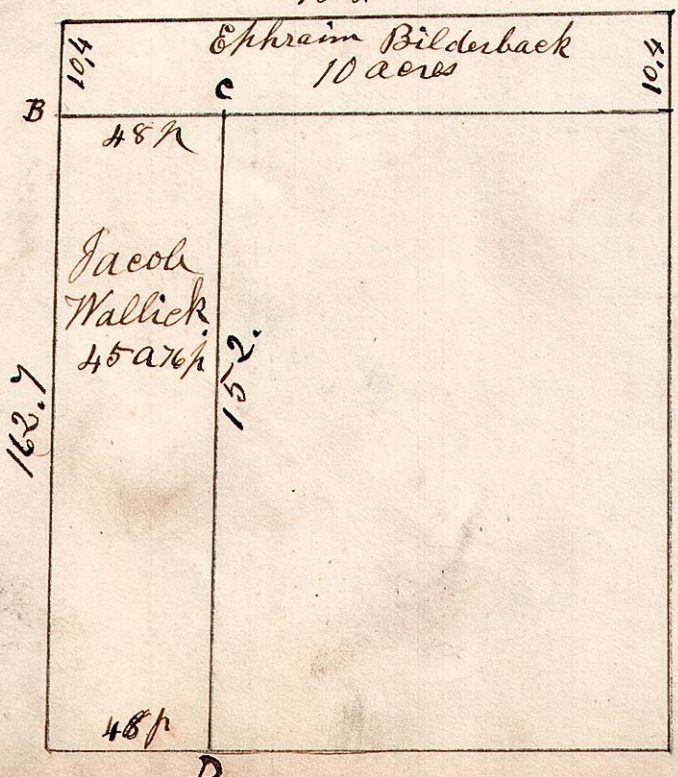 10,4
Ephraim Bilderback
10 acres
10.4
B
C
48 p
Jacob
Wallick
45 a 76 p
162.7
152.
48 p
D